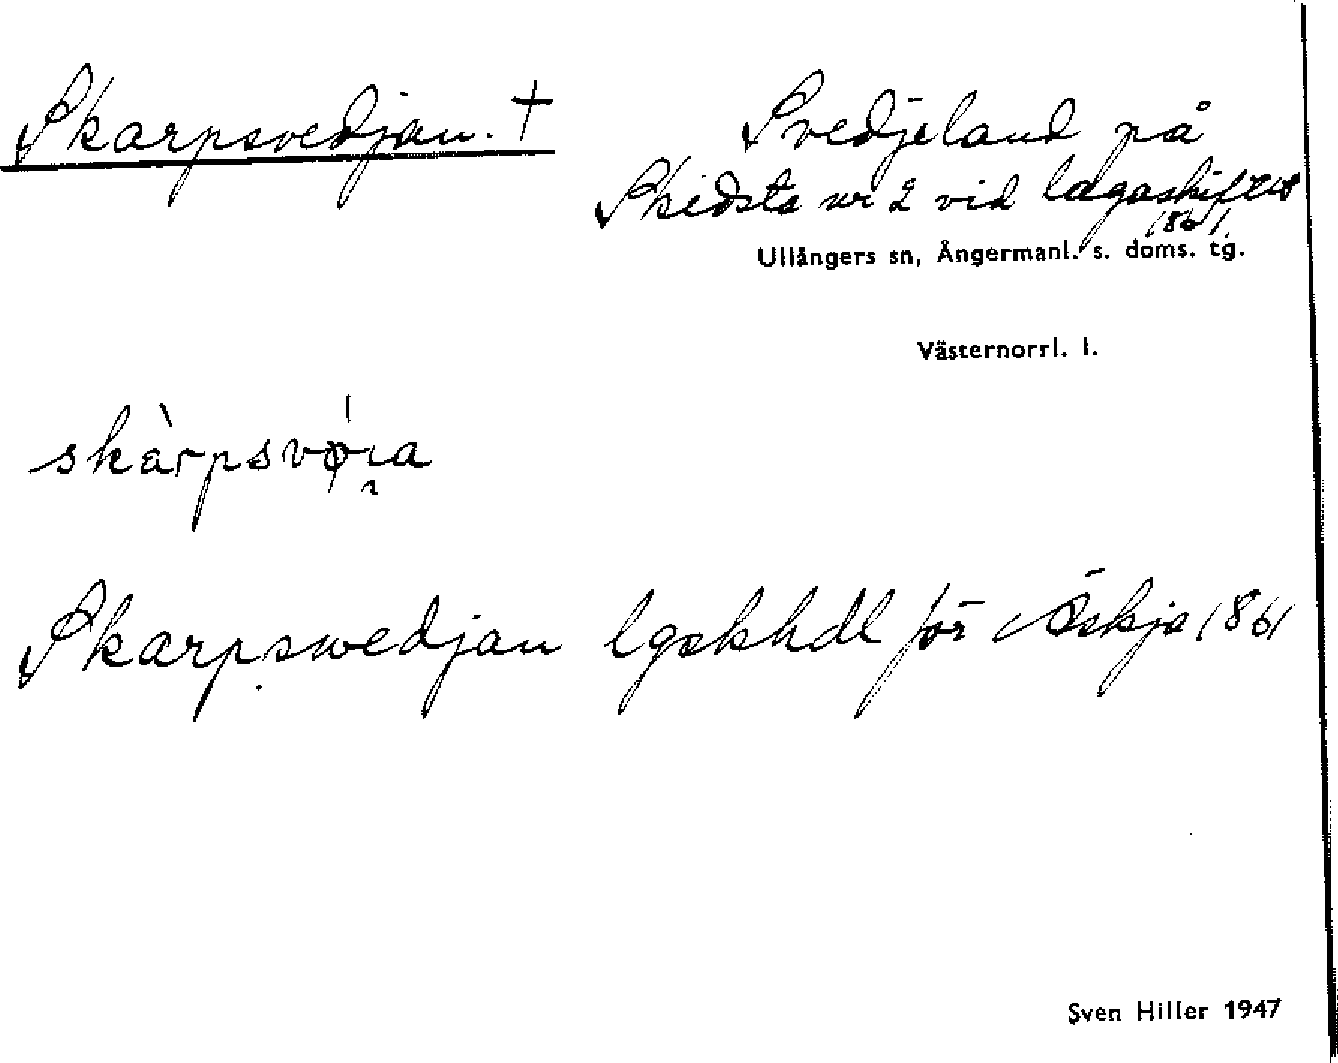 Skarpsvedjan. †
Svedjeland på
Skidsta nr 2 vid lagaskiftet
1861.
Ullångers sn, Ångermanl. s. doms. tg.
Västernorrl. l.
Skarpswedjan lgskhdl för Äskja 1861
Sven Hiller 1947